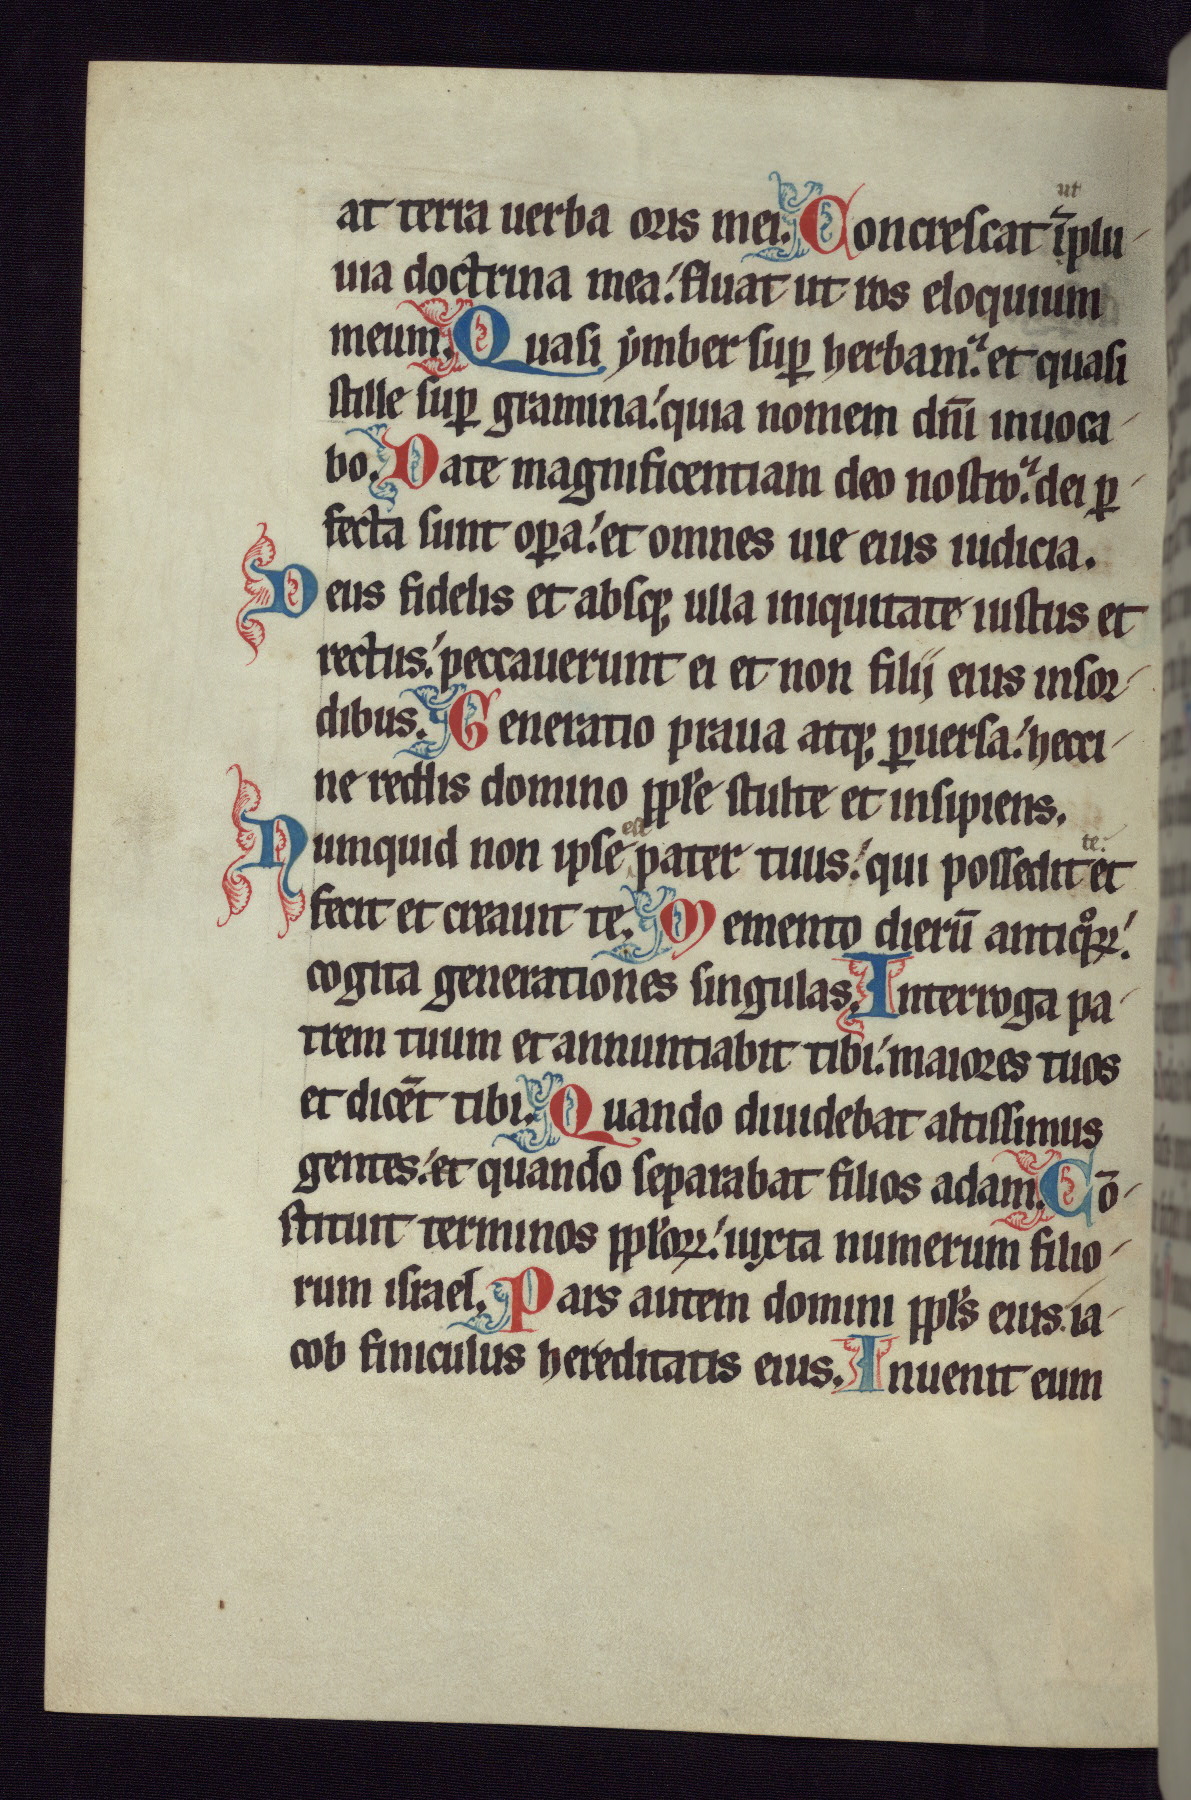 at terra uerba oris mei. Concrescat ut īplu
uia doctrina mea. fluat ut ros eloquium
meum. Quasi ẏmber suꝑ herbam. et quasi
stille suꝑ gramina. quia nomem dn̄i inuoca
bo. Date magnificentiam deo nostro. dei ꝑ
fecta sunt oꝑa. et omnes uie eius iudicia.
Deus fidelis et absqꝫ ulla iniquitate iustus et
rectus. peccauerunt ei et non filii eius in sor
dibus. Generatio praua atqꝫ ꝑuersa. hecci
ne reddis domino ppl̄e stulte et insipiens.
Numquid non ipse est pater tuus. qui possedit te. et
fecit et creauit te. Memento dierū antiqͦꝝ.
cogita generationes singulas. Interroga pa
trem tuum et annuntiabit tibi. maiores tuos
et dicēt tibi. Quando diuidebat altissimus
gentes. et quando separabat filios adam. Cō
stituit terminos ppl̄oꝝ. iuxta numerum filio
rum israel. Pars autem domini ppl̄s eius. ia
cob finiculus hereditatis eius. Inuenit eum